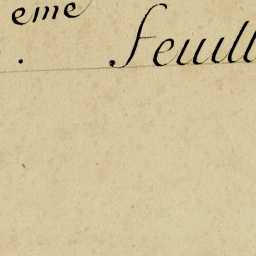 eme
. Feuill